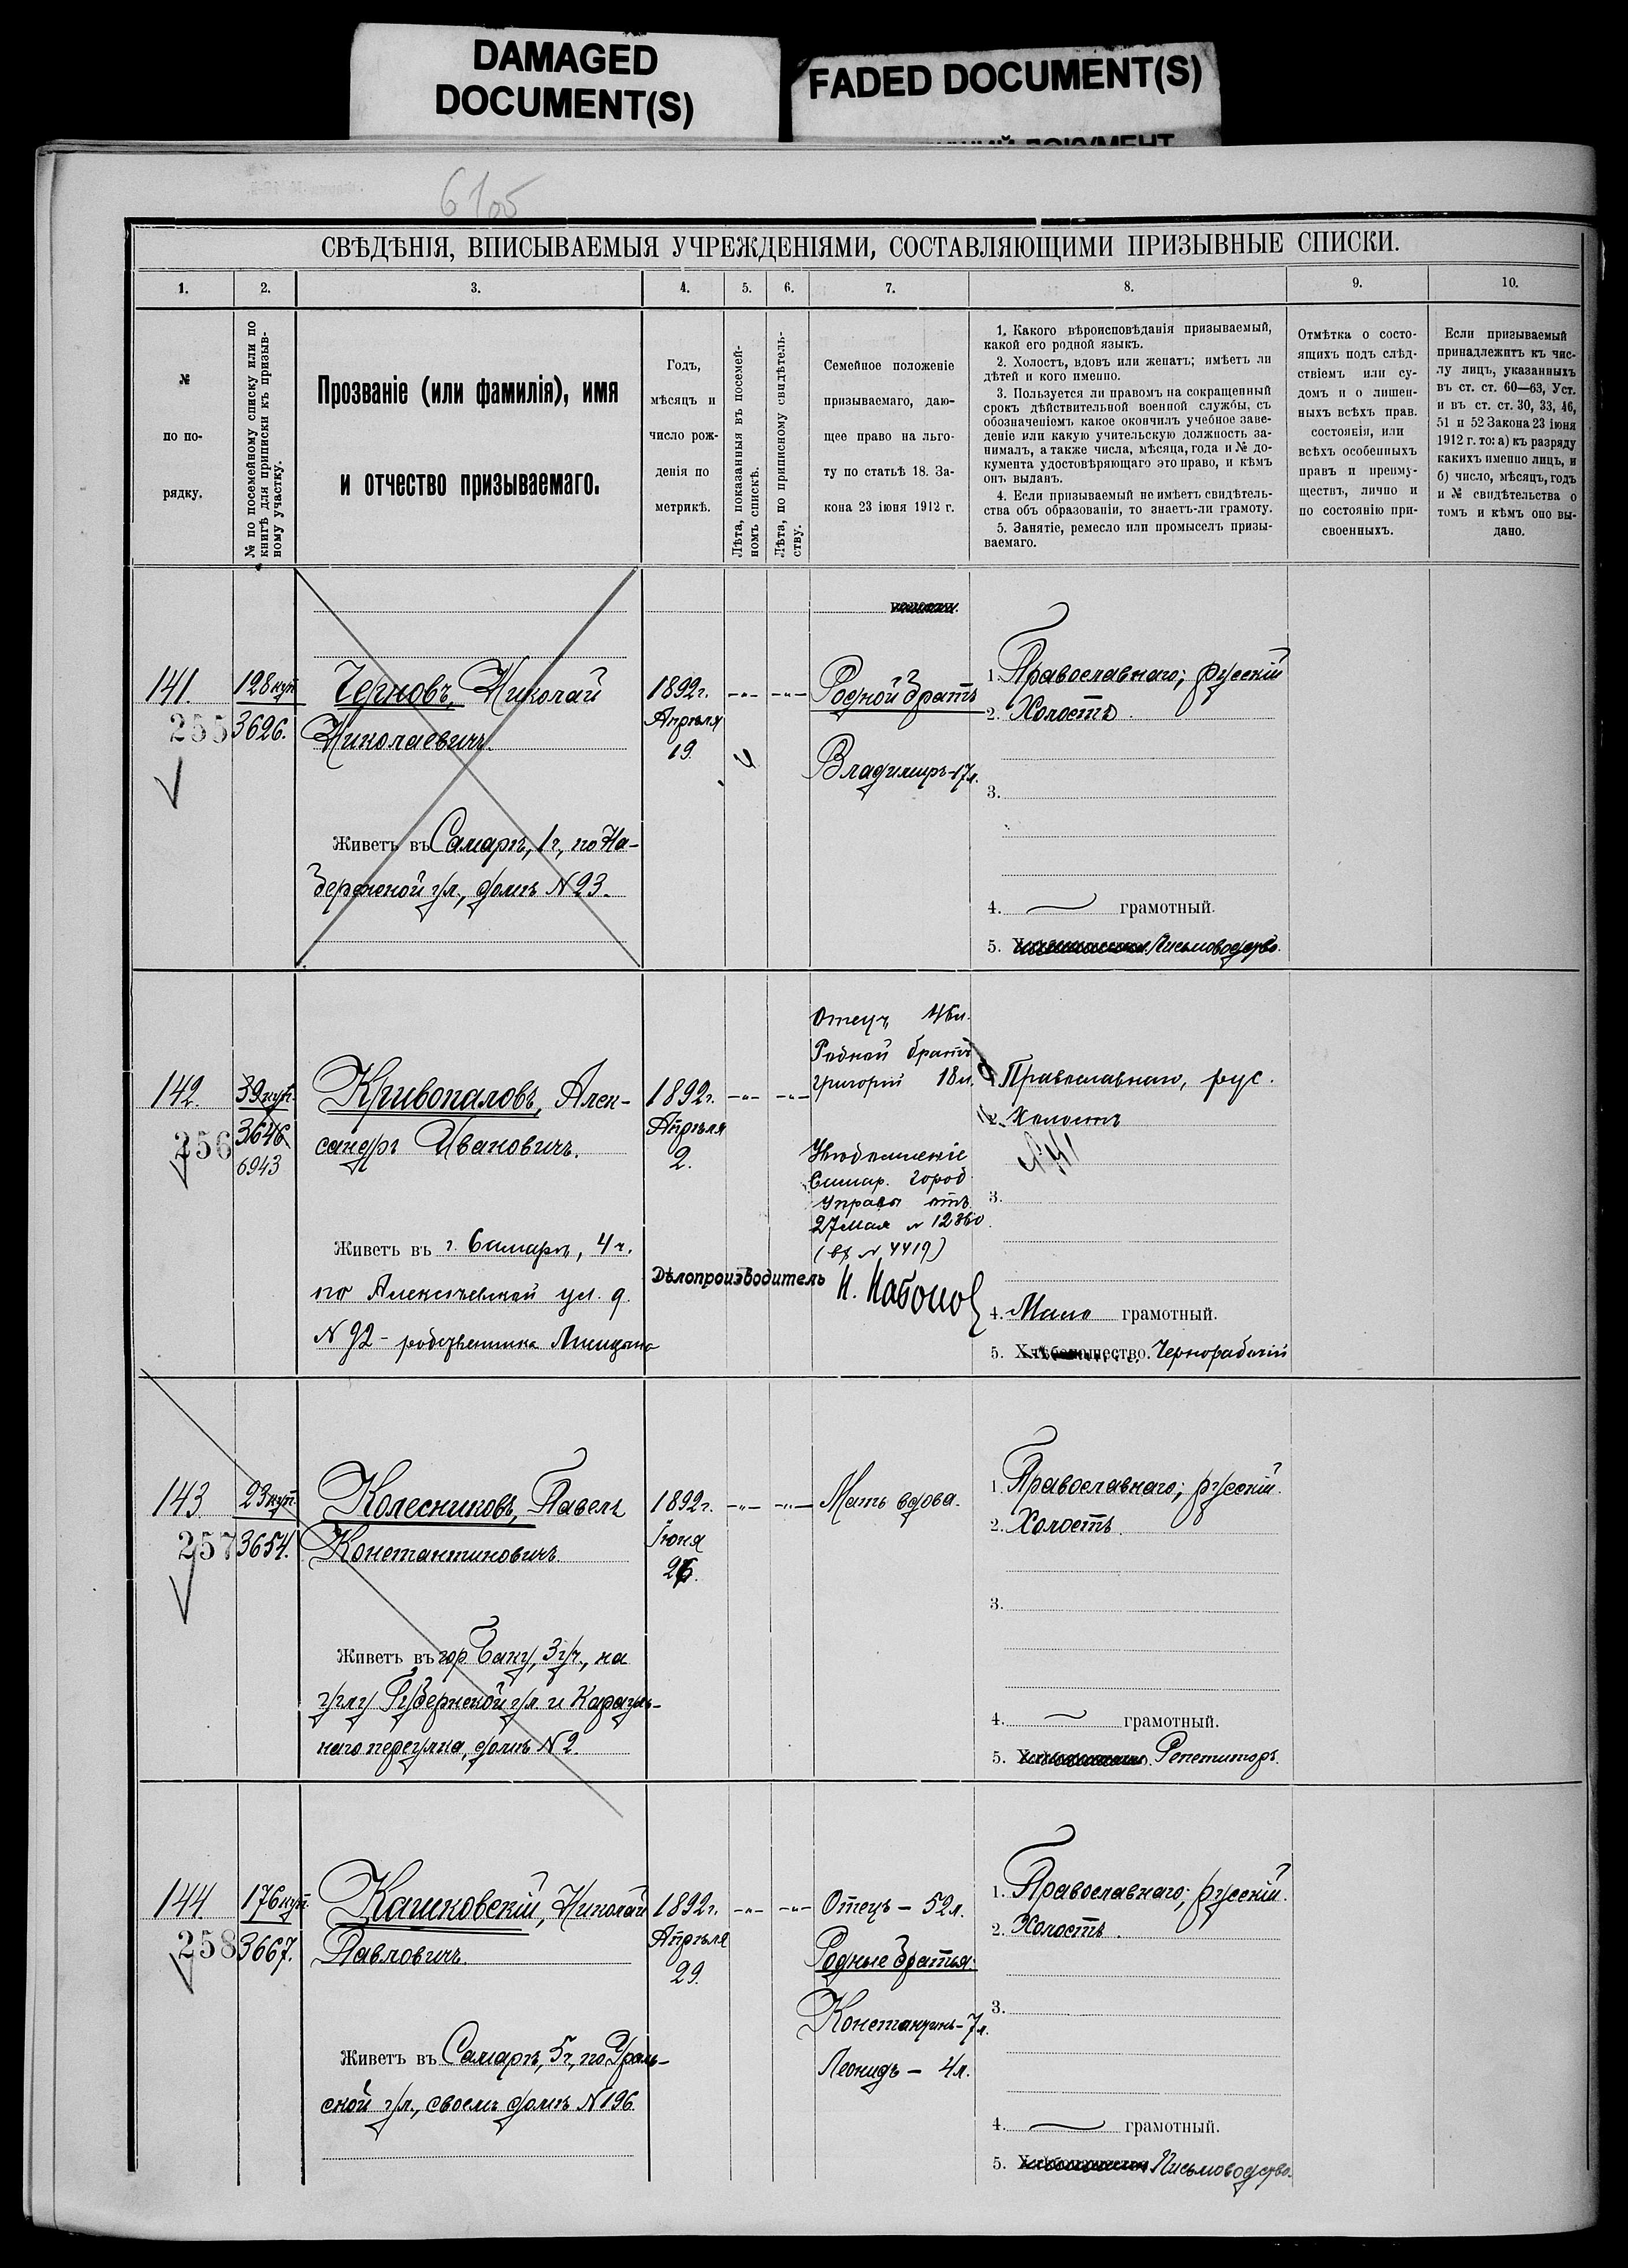 DAMAGED
DOCUMENT(S)
FADED DOCUMENT(S)
6105
СВѢДѢНІЯ, ВПИСЫВАЕМЫЯ УЧРЕЖДЕНІЯМИ, СОСТАВЛЯЮЩИМИ ПРИЗЫВНЫЕ СПИСКИ.
1. 2. 3. 4. 5. 6. 7. 8. 9. 10.
№
по по-
рядку.
№ по посемейному списку или по
книгѣ для приписки къ призыв-
ному участку.
Прозваніе (или фамилія), имя
и отчество призываемаго.
Годъ,
мѣсяцъ и
число рож-
денія по
метрикѣ.
Лѣта, показанныя въ посемей-
номъ спискѣ.
Лѣта, по приписному свидѣтель-
ству.
Семейное положеніе
призываемаго, даю-
щее право на льго-
ту по статьѣ 18. За-
кона 23 іюня 1912 г.
1. Какого вѣроисповѣданія призываемый,
какой его родной языкъ.
2. Холостъ, вдовъ или женатъ; имѣетъ ли
дѣтей и кого именно.
3. Пользуется ли правомъ на сокращенный
срокъ дѣйствительной военной службы, съ
обозначеніемъ какое окончилъ учебное заве-
деніе или какую учительскую должность за-
нималъ, а также числа, мѣсяца, года и № до-
кумента удостовѣряющаго это право, и кѣмъ
онъ выданъ.
4. Если призываемый не имѣетъ свидѣтель-
ства объ образованіи, то знаетъ-ли грамоту.
5. Занятіе, ремесло или промыселъ призы-
ваемаго.
Отмѣтка о состо-
ящихъ подъ слѣд-
ствіемъ или су-
домъ и о лишен-
ныхъ всѣхъ прав.
состоянія, или
всѣхъ особенныхъ
правъ и преиму-
ществъ, лично и
по состоянію при-
своенныхъ.
Если призываемый
принадлежитъ къ чис-
лу лицъ, указанныхъ
въ ст. ст. 60—63, Уст.
и въ ст. ст. 30, 33, 46,
51 и 52 Закона 23 іюня
1912 г. то: а) къ разряду
какихъ именно лицъ, и
б) число, мѣсяцъ, годъ
и № свидѣтельства о
томъ и кѣмъ оно вы-
дано.
141.
255
128 куп.
3626.
Черновъ, Николай
Николаевичъ.
Живетъ въ Самарѣ, 1 ч., по На-
бережной ул., домъ N 23.
1892 г.
Апрѣля
19.
Родной братъ
Владимиръ-17 л.
1. Православнаго; русскій
2. Холостъ.
3.
4. грамотный.
5. Письмоводство.
142.
256
39 куп.
3646
6943
Кривопаловъ, Алек-
сандръ Ивановичъ.
Живетъ въ г. Самарѣ, 4 ч.
по Алексѣевской ул. д.
N 92 -
1892 г.
Апрѣля
2.
Отецъ 46 л.
Родной братъ
Григорій 18 л.
Увѣдомленіе
Самар. Город.
Управы отъ
27 Мая N 12860
(вх N 4419)
Дѣлопроизводитель
1. Православнаго, рус.
2. Холостъ
3.
4. Мало грамотный.
5. Хлѣбопашество. Чернорабочій
143.
257
23 куп.
3654.
Колесниковъ, Павелъ
Константиновичъ.
Живетъ въ гор. Баку, 3 уч., на
углу Губернской ул. и Карауль-
наго переулка, домъ N 2.
1892 г.
Іюня
26.
Мать вдова.
1. Православнаго; русскій.
2. Холостъ.
3.
4. грамотный.
5. Репетиторъ.
144.
258
176 куп.
3667.
Кашковскій, Николай
Павловичъ.
Живетъ въ Самарѣ, 5 ч., по Ураль-
ской ул., своемъ домѣ N 196.
1892 г.
Апрѣля
29.
Отецъ - 52 л.
Родные братья:
Константинъ - 7 л.
Леонидъ - 4 л.
1. Православнаго; русскій.
2. Холостъ.
3.
4. грамотный.
5. Письмоводство.